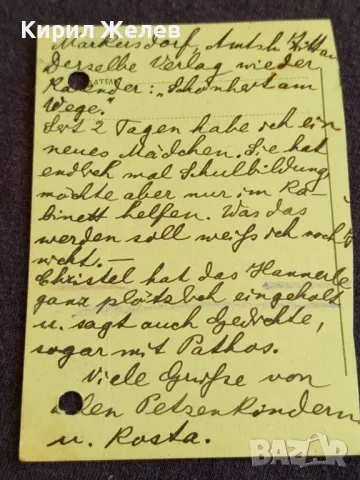 Кирил Желев
Markersdorf, Amtsh. Zittau
Derselbe Verlag wieder
Kalender: "Schönheit am
Wege."
Seit 2 Tagen habe ich ein
neues Mädchen. Sie hat
endlich mal Schulbildung,
möchte aber nur im Ka-
binett helfen. Was das
werden soll weiß ich noch
nicht. –
Christel hat das Hannerle
ganz plötzlich eingeholt
u. sagt auch Gedichte,
sogar mit Pathos.
Viele Grüße von
allen Petzenkindern
u. Rosta.
bazar